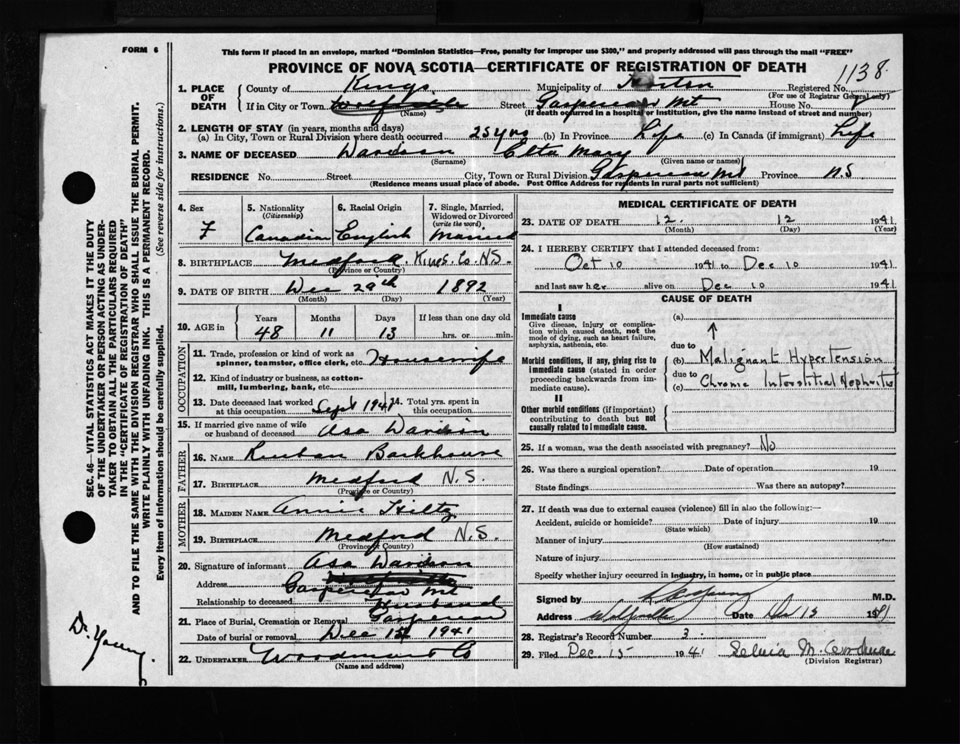 FORM 6
This form if placed in an envelope, marked "Dominion Statistics—Free, penalty for improper use $300," and properly addressed will pass through the mail "FREE"
PROVINCE OF NOVA SCOTIA—CERTIFICATE OF REGISTRATION OF DEATH
1138
1. PLACE OF DEATH
County of Kings
Municipality of
Registered No.
(For use of Registrar General only)
If in City or Town Wolfville
(Name)
Street Gaspereau Mt
House No.
(If death occurred in a hospital or institution, give the name instead of street and number)
2. LENGTH OF STAY (in years, months and days)
(a) In City, Town or Rural Division where death occurred 25 yrs (b) In Province Life (c) In Canada (if immigrant) Life
3. NAME OF DECEASED Davison Etta Mary
(Surname) (Given name or names)
RESIDENCE No. Street City, Town or Rural Division Gaspereau Mt Province N.S.
(Residence means usual place of abode. Post Office Address for residents in rural parts not sufficient)
4. Sex
F
5. Nationality
(Citizenship)
Canadian
6. Racial Origin
English
7. Single, Married, Widowed or Divorced
(write the word)
Married
8. BIRTHPLACE Medford. Kings. Co. N.S.
(Province or Country)
9. DATE OF BIRTH Dec 29th 1892
(Month) (Day) (Year)
10. AGE in
Years Months Days If less than one day old
48 11 13 hrs. or min.
OCCUPATION
11. Trade, profession or kind of work as spinner, teamster, office clerk, etc. Housewife
12. Kind of industry or business, as cotton-mill, lumbering, bank, etc.
13. Date deceased last worked at this occupation Sept 1941
14. Total yrs. spent in this occupation
15. If married give name of wife or husband of deceased Asa Davison
FATHER
16. NAME Reuban Barkhouse
17. BIRTHPLACE Medford N.S.
(Province or Country)
MOTHER
18. MAIDEN NAME Annie Hiltz
19. BIRTHPLACE Medford N.S.
(Province or Country)
20. Signature of informant Asa Davison
Address Gaspereau Mt
Relationship to deceased Husband
21. Place of Burial, Cremation or Removal Gaspereau
Date of burial or removal Dec 15 1941
22. UNDERTAKER
(Name and address)
MEDICAL CERTIFICATE OF DEATH
23. DATE OF DEATH 12. 12 1941
(Month) (Day) (Year)
24. I HEREBY CERTIFY that I attended deceased from:
Oct 10 1941 to Dec 10 1941
and last saw her alive on Dec 10 1941
CAUSE OF DEATH
I
Immediate cause
Give disease, injury or complication which caused death, not the mode of dying, such as heart failure, asphyxia, asthenia, etc.
(a)
due to
Morbid conditions, if any, giving rise to immediate cause (stated in order proceeding backwards from immediate cause).
(b) Malignant Hypertension
due to
(c) Chronic Interstitial Nephritis
II
Other morbid conditions (if important) contributing to death but not causally related to immediate cause.
25. If a woman, was the death associated with pregnancy? No
26. Was there a surgical operation? Date of operation 19
State findings Was there an autopsy?
27. If death was due to external causes (violence) fill in also the following:—
Accident, suicide or homicide? Date of injury 19
(State which)
Manner of injury
(How sustained)
Nature of injury
Specify whether injury occurred in industry, in home, or in public place
Signed by M.D.
Address Wolfville Date Dec 15 1941
28. Registrar's Record Number 3.
29. Filed Dec. 15 1941 Selvia M.
(Division Registrar)
SEC. 46—VITAL STATISTICS ACT MAKES IT THE DUTY
OF THE UNDERTAKER OR PERSON ACTING AS UNDER-
TAKER TO OBTAIN ALL THE PARTICULARS REQUIRED
IN THE "CERTIFICATE OF REGISTRATION OF DEATH"
AND TO FILE THE SAME WITH THE DIVISION REGISTRAR WHO SHALL ISSUE THE BURIAL PERMIT.
WRITE PLAINLY WITH UNFADING INK. THIS IS A PERMANENT RECORD.
Every item of information should be carefully supplied. (See reverse side for instructions.)
Dr. Young